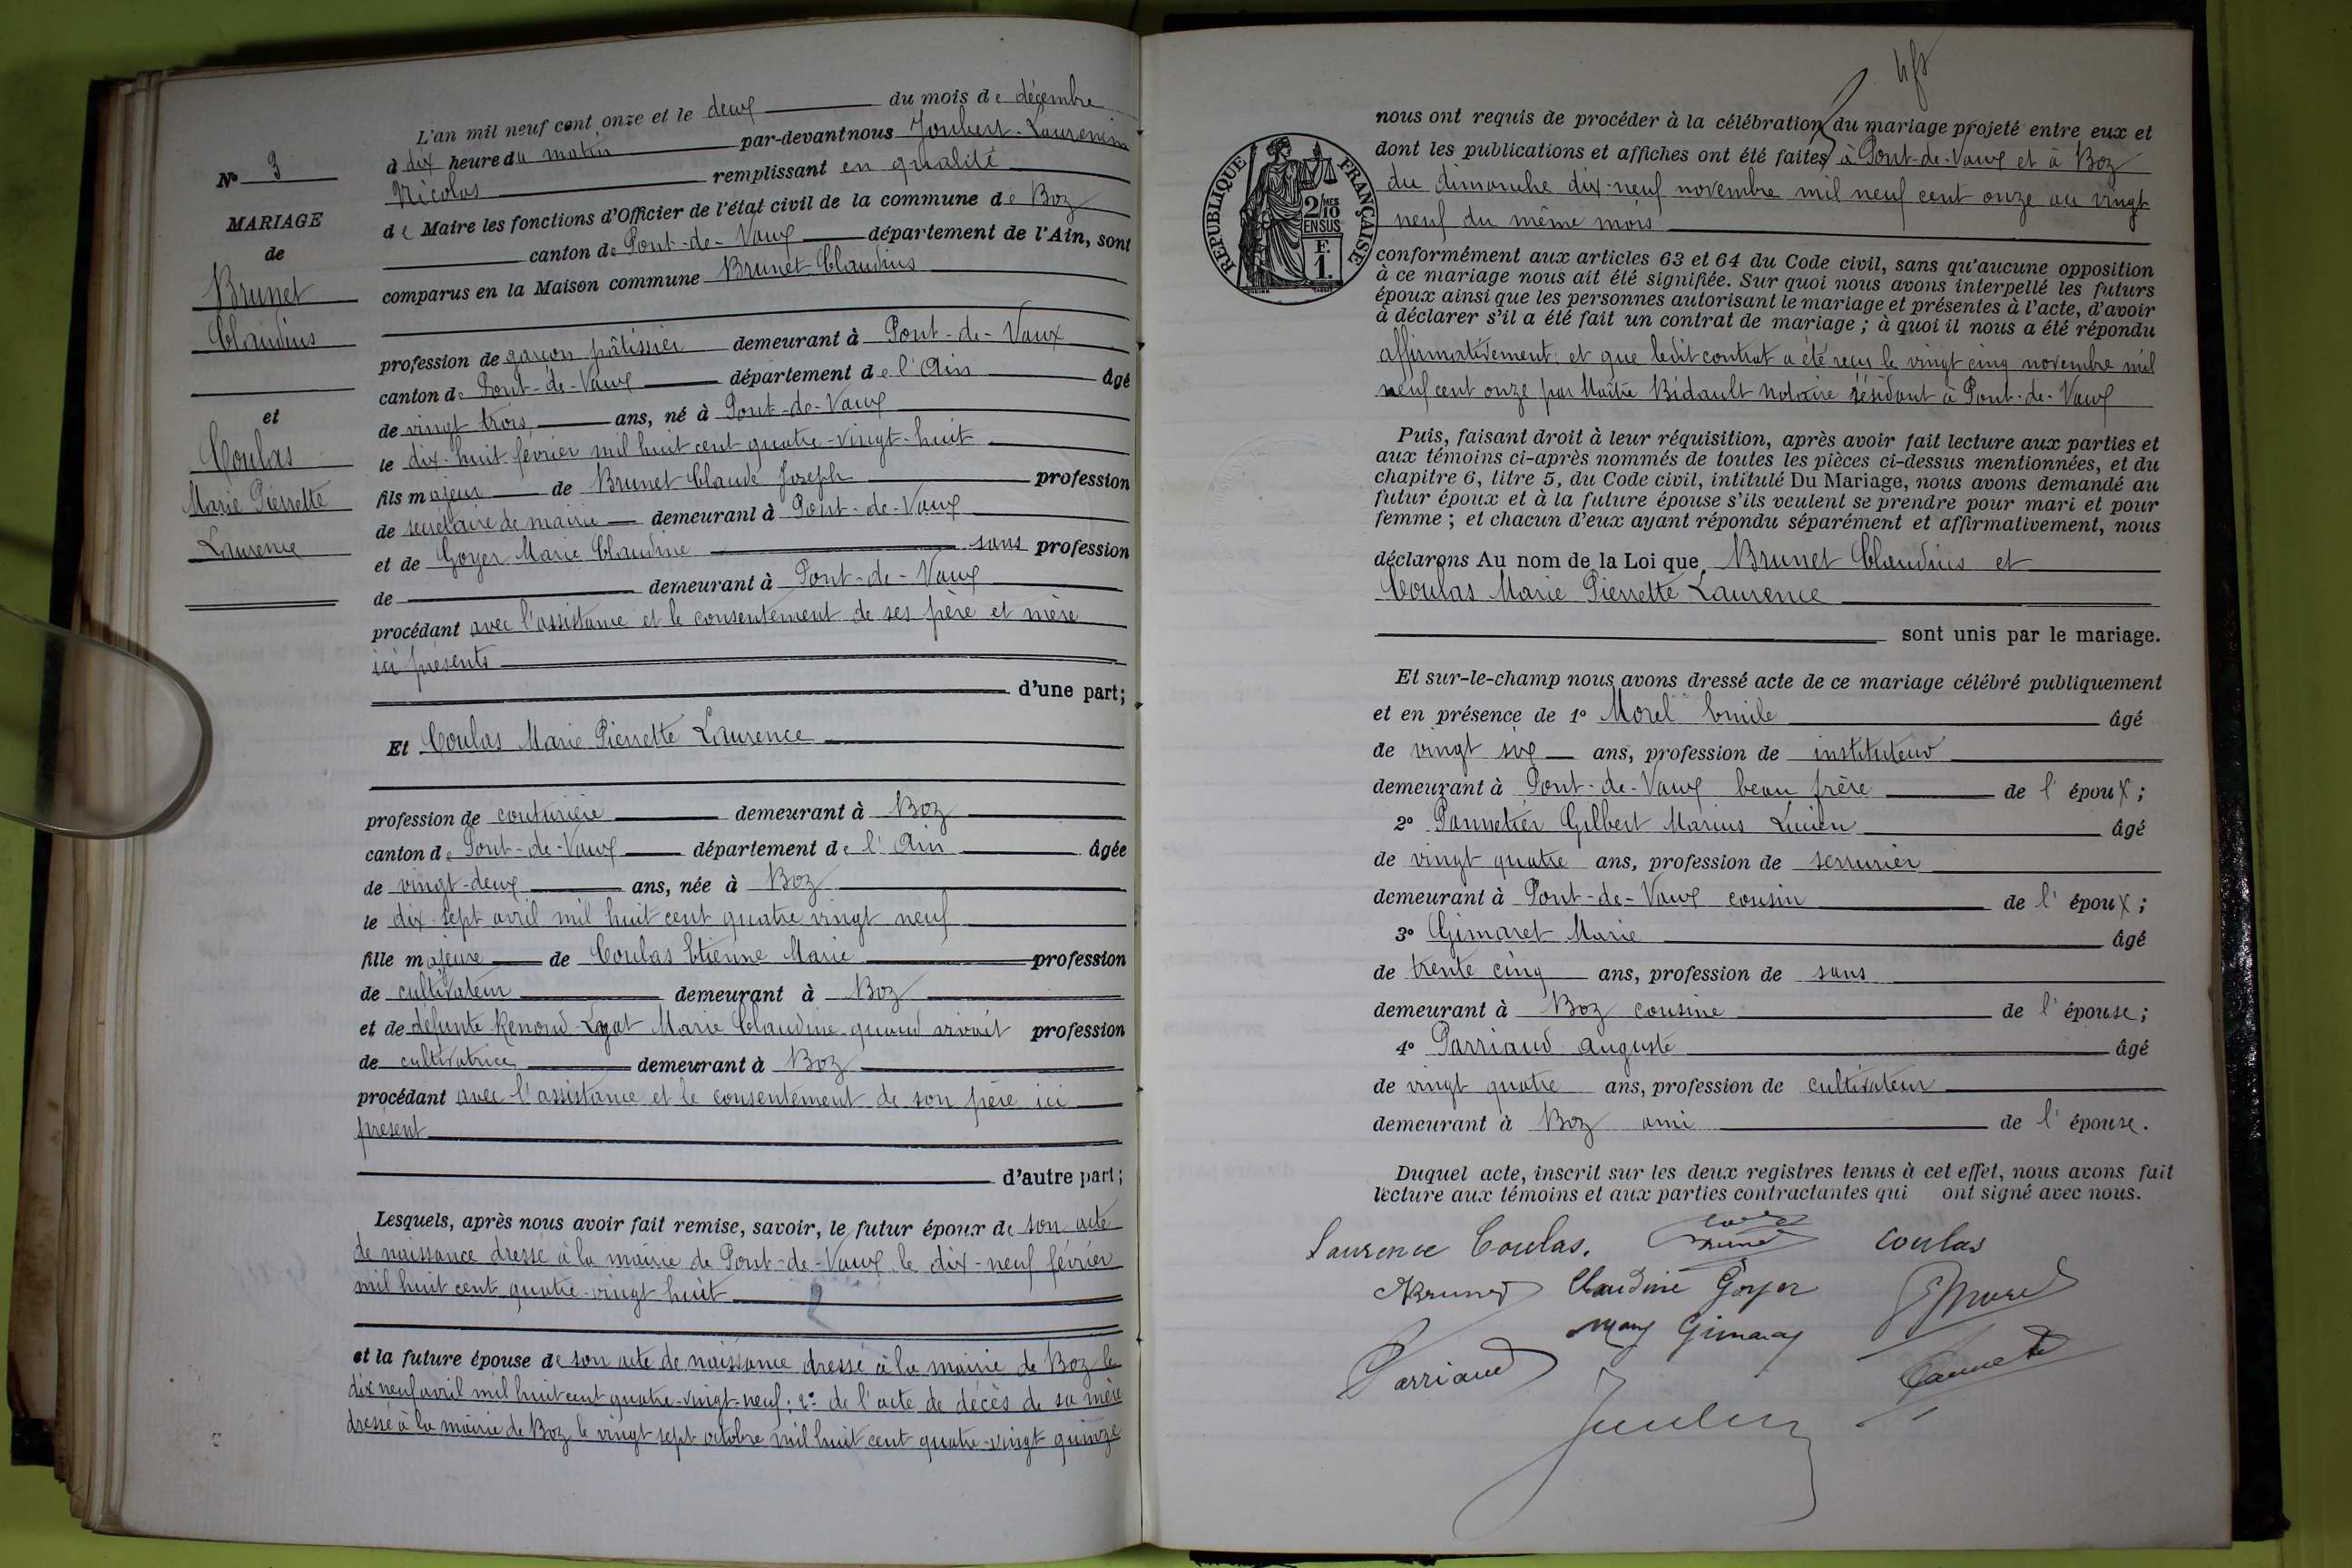 N° 9
MARIAGE
de
Brunet
Claudius
et
Coulas
Marie Pierrette
Laurence
L'an mil neuf cent onze et le deux du mois de décembre
à dix heure du matin par-devant nous Joubert-Laurencin
Nicolas remplissant en qualité
de Maire les fonctions d'Officier de l'état civil de la commune de Boz
canton de Pont-de-Vaux département de l'Ain, sont
comparus en la Maison commune Brunet Claudius
profession de garçon pâtissier demeurant à Pont-de-Vaux
canton de Pont-de-Vaux département de l'Ain âgé
de vingt trois ans, né à Pont-de-Vaux
le dix-huit février mil huit cent quatre-vingt-huit
fils majeur de Brunet Claude Joseph profession
de secrétaire de mairie demeurant à Pont-de-Vaux
et de Goyer Marie Claudine sans profession
de demeurant à Pont-de-Vaux
procédant avec l'assistance et le consentement de ses père et mère
ici présents
d'une part;
Et Coulas Marie Pierrette Laurence
profession de couturière demeurant à Boz
canton de Pont-de-Vaux département de l'Ain âgée
de vingt-deux ans, née à Boz
le dix-sept avril mil huit cent quatre vingt neuf
fille majeure de Coulas Etienne Marie profession
de cultivateur demeurant à Boz
et de défunte Renoud-Lyat Marie Claudine quand vivait profession
de cultivatrice demeurant à Boz
procédant avec l'assistance et le consentement de son père ici
présent
d'autre part;
Lesquels, après nous avoir fait remise, savoir, le futur époux de son acte
de naissance dressé à la mairie de Pont-de-Vaux le dix-neuf février
mil huit cent quatre-vingt huit
et la future épouse de son acte de naissance dressé à la mairie de Boz le
dix neuf avril mil huit cent quatre-vingt-neuf; 2° de l'acte de décès de sa mère
dressé à la mairie de Boz le vingt sept octobre mil huit cent quatre-vingt quinze
REPUBLIQUE FRANÇAISE
2/10 MES
EN SUS
F.
1.
nous ont requis de procéder à la célébration du mariage projeté entre eux et
dont les publications et affiches ont été faites à Pont-de-Vaux et à Boz
du dimanche dix-neuf novembre mil neuf cent onze au vingt
neuf du même mois
conformément aux articles 63 et 64 du Code civil, sans qu'aucune opposition
à ce mariage nous ait été signifiée. Sur quoi nous avons interpellé les futurs
époux ainsi que les personnes autorisant le mariage et présentes à l'acte, d'avoir
à déclarer s'il a été fait un contrat de mariage; à quoi il nous a été répondu
affirmativement et que ledit contrat a été reçu le vingt cinq novembre mil
neuf cent onze par Maître Bidault notaire résidant à Pont-de-Vaux
Puis, faisant droit à leur réquisition, après avoir fait lecture aux parties et
aux témoins ci-après nommés de toutes les pièces ci-dessus mentionnées, et du
chapitre 6, titre 5, du Code civil, intitulé Du Mariage, nous avons demandé au
futur époux et à la future épouse s'ils veulent se prendre pour mari et pour
femme; et chacun d'eux ayant répondu séparément et affirmativement, nous
déclarons Au nom de la Loi que Brunet Claudius et
Coulas Marie Pierrette Laurence
sont unis par le mariage.
Et sur-le-champ nous avons dressé acte de ce mariage célébré publiquement
et en présence de 1° Morel Emile âgé
de vingt six ans, profession de instituteur
demeurant à Pont-de-Vaux beau frère de l'époux;
2° Pannetier Gilbert Marius Lucien âgé
de vingt quatre ans, profession de serrurier
demeurant à Pont-de-Vaux cousin de l'époux;
3° Gimaret Marie âgé
de trente cinq ans, profession de sans
demeurant à Boz cousine de l'épouse;
4° Parriaud Auguste âgé
de vingt quatre ans, profession de cultivateur
demeurant à Boz ami de l'épouse.
Duquel acte, inscrit sur les deux registres tenus à cet effet, nous avons fait
lecture aux témoins et aux parties contractantes qui ont signé avec nous.
Laurence Coulas. Brunet Coulas
Brunet Claudine Goyer E Morel
Parriaud